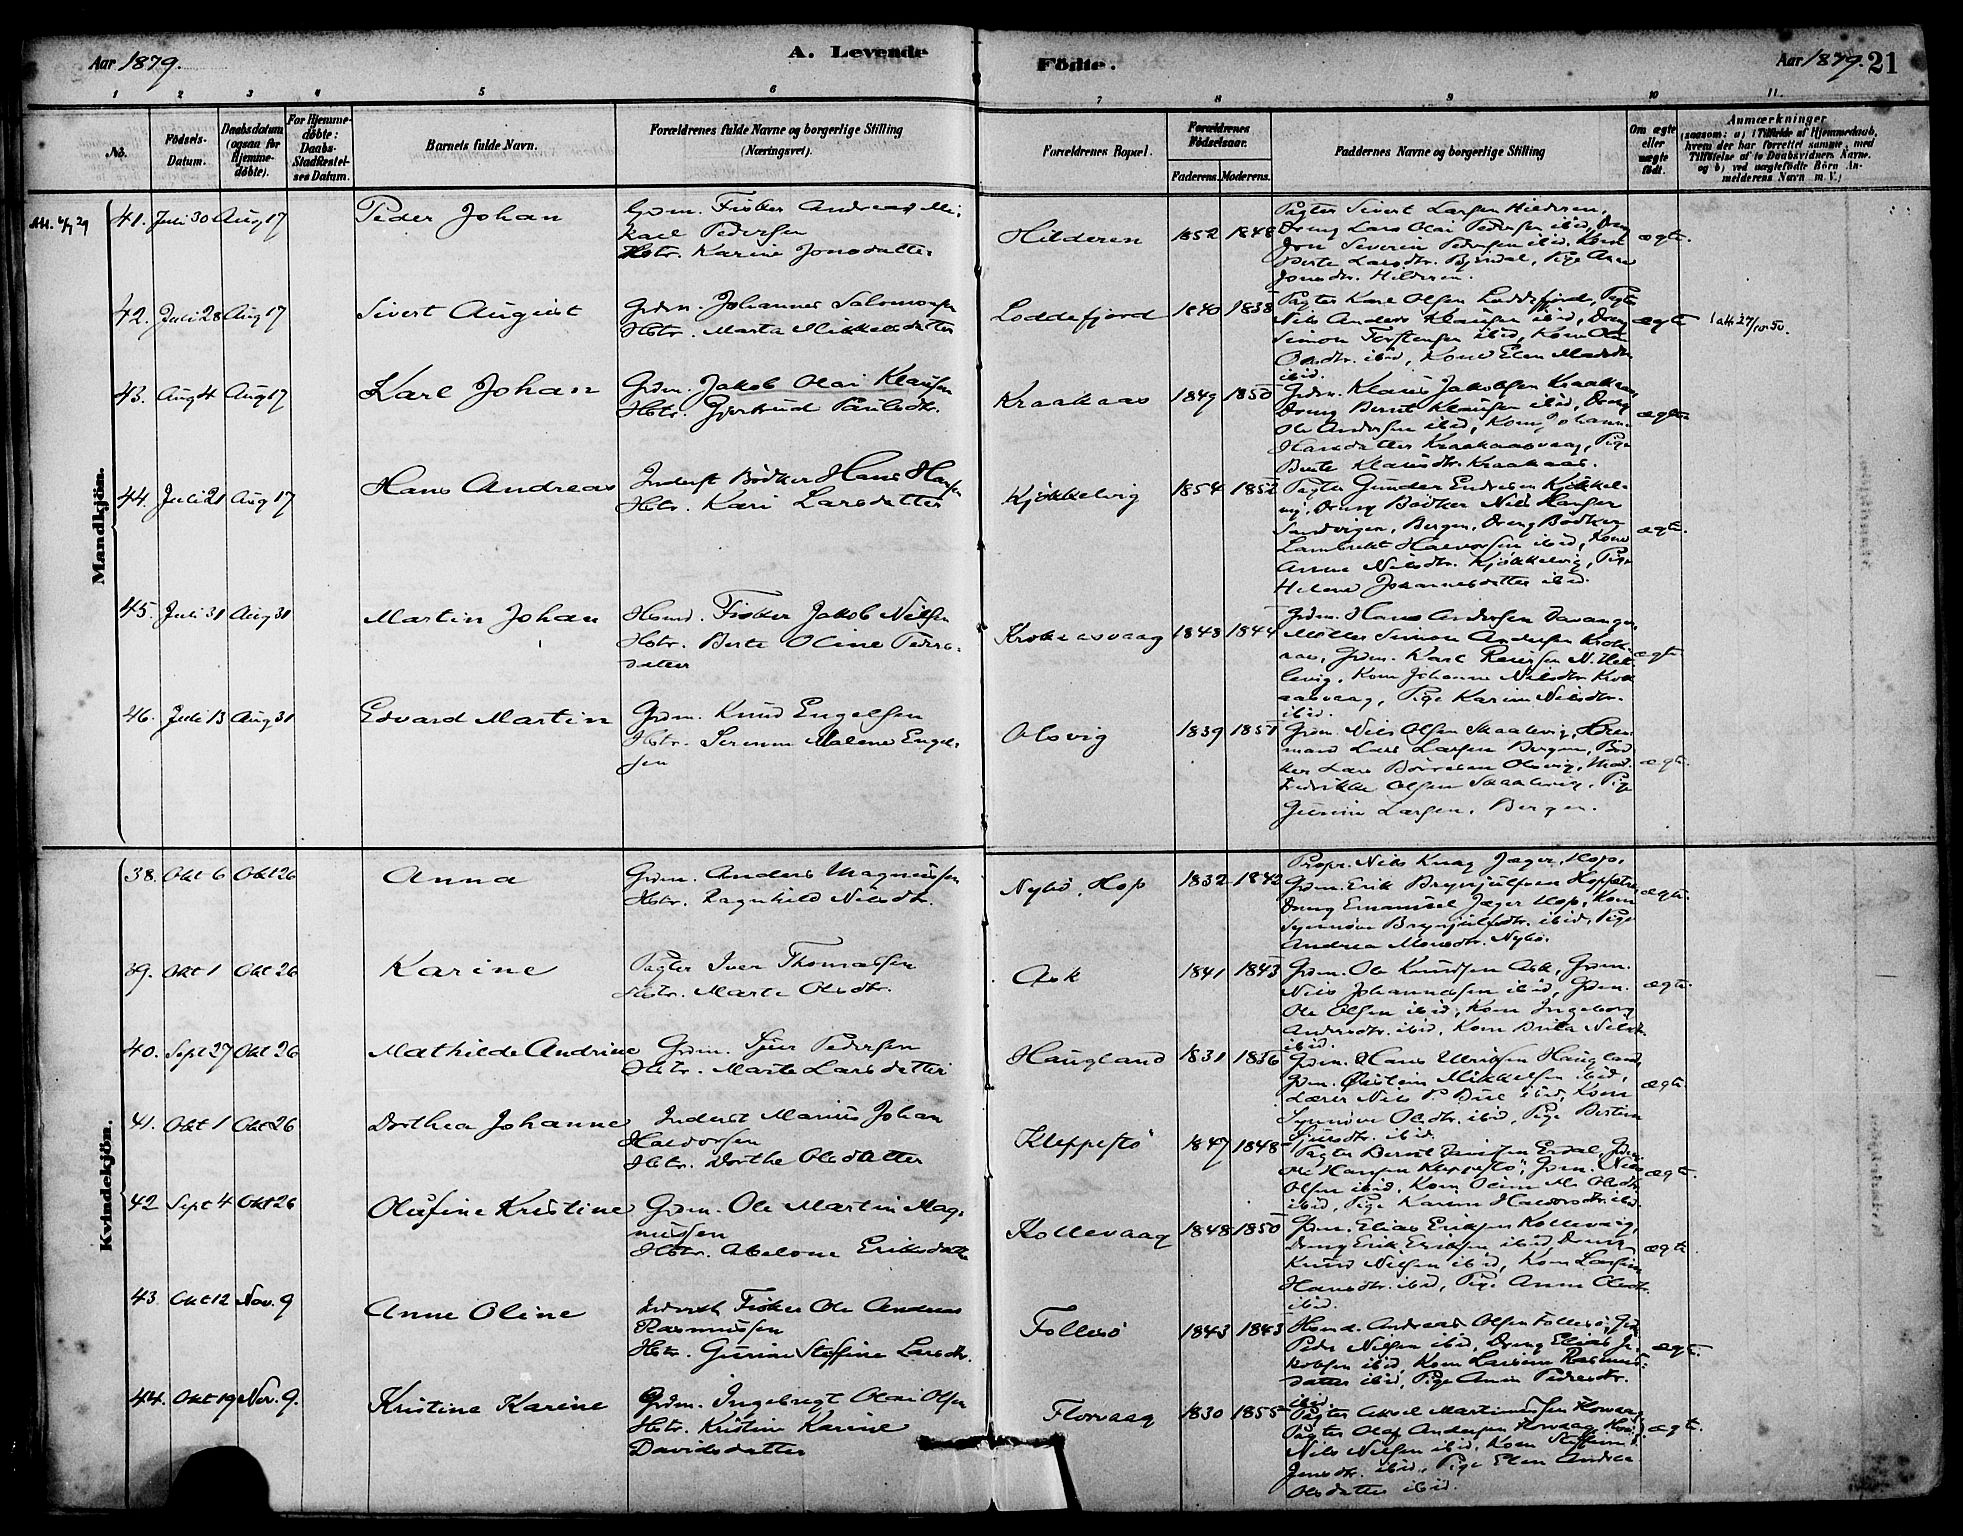 Aar 1879.
A. Levende
Födte.
Aar 1879. 21
1 2 3 4 5 6 7 8 9 10 11
No.
Födsels-Datum.
Daabsdatum (ogsaa for Hjemme-døbte).
For Hjemme-døbte: Daabs-Stadfæstel-ses Datum.
Barnets fulde Navn.
Forældrenes fulde Navne og borgerlige Stilling (Næringsvei).
Forældrenes Bopæl.
Forældrenes Födselsaar.
Faderens. Moderens.
Faddernes Navne og borgerlige Stilling
Om ægte eller uægte födt.
Anmærkninger
(saasom: a) i Tilfælde af Hjemmedaab, hvem der har forrettet samme, med Tilföielse af to Daabsvidners Navne, og b) ved uægtefödte Börn Anmelderens Navn m. V.)
Mandkjön.
41. Juli 30 Aug 17 Peder Johan
Gdm. Fisker Andreas Mi-
kael Pedersen
Hstr. Karine Jonsdatter
Hilderen 1852 1848
Pagter Sivert Larsen Hilderen,
Dreng Lars Olai Pedersen ibid, Dreng
Jon Severin Pedersen ibid, Kone
Berte Larsdtr. Bjordal, Pige Ane
Jonsdtr. Hilderen.
ægte.
42. Juli 28 Aug 17 Sivert August
Gdm. Johannes Salomonsen
Hstr. Marta Mikkelsdatter
Loddefjord 1840 1838
Pagter Karl Olsen Loddefjord, Pagter
Nils Anders Klausen ibid, Dreng
Simon Torstensen ibid, Kone
Olsdtr. ibid, Kone Elen Madsdtr.
ibid.
ægte
1 att. 27/10-50.
43. Aug 4 Aug 17 Karl Johan
Gdm. Jakob Olai Klausen
Hstr. Gjertrud Paulsdtr.
Kraakaas 1849 1850
Gdm. Klaus Jakobsen Kraakaas,
Dreng Bernt Klausen ibid, Dreng
Ole Andersen ibid, Kone Johanne
Hansdatter Kraakaasvaag, Pige
Berte Klausdtr. Kraakaas.
ægte
44. Juli 21 Aug 17 Hans Andreas
Inderst Bødker Hans Hansen
Hstr. Kari Larsdatter
Kjøkkelvig 1854 1852
Pagter Gunder Endresen Kjøkkel-
vig, Dreng Bødker Nils Hansen
Sandvigen, Bergen, Dreng Bødker
Lambrekt Halvorsen ibid, Kone
Anne Nilsdtr. Kjøkkelvig, Pige
Helene Johannesdatter ibid.
ægte.
45. Juli 31 Aug 31 Martin Johan
Husmd. Fisker Jakob Nilsen
Hstr. Berte Oline Peders-
datter
Krokaasvaag 1843 1844
Gdm. Hans Andersen Davanger,
Møller Simon Andersen Krok-
aas, Gdm. Karl Reiersen N. Hel-
levig, Kone Johanne Nilsdtr. Krok
aasvaag, Pige Karine Nilsdtr.
ibid.
ægte
46. Juli 13 Aug 31 Edvard Martin
Gdm. Knud Engelsen
Hstr. Malene Engel-
sen
Olsvig 1839 1851
Gdm. Nils Olsen Skaalevig,
Lars Larsen Bergen, Bød
ker Lars Børresen Olsvig,
Fredrikke Olsen Skaalevig, Pige
Gurine Larsen, Bergen.
ægte.
Kvindekjön.
38. Okt 6 Okt 26 Anna
Gdm. Anders Magnussen
Hstr. Ragnhild Nilsdtr.
Nybö, Hop 1832 1842
Propr. Nils Knag Jæger, Hop,
Gdm. Erik Brynjulfsen
Dreng Emanuel Jæger Hop, Kone
Synnöve Brynjulfsdtr. ibid, Pige
Andrea Monsdtr. Nybö.
ægte.
39. Okt 1 Okt 26 Karine
Pagter Iver Thomassen
Hstr. Marte Olsdtr.
Ask 1841 1843
Gdm. Ole Knudsen Ask, Gdm.
Nils Johannessen ibid, Gdm.
Ole Olsen ibid, Kone Ingeborg
Andersdtr. ibid, Kone Brita Nilsdtr.
ibid.
ægte.
40. Sept 27 Okt 26 Mathilde Andrine
Gdm. Sjur Pedersen
Hstr. Marte Larsdatter
Haugland 1831 1836
Gdm. Hans Ulriksen Haugland,
Gdm. Øistein Mikkelsen ibid,
Lærer Nils P. ibid, Kone
Synnöve Olsdtr. ibid, Pige Bertine
Sjursdtr. ibid.
ægte.
41. Okt 1 Okt 26 Dorthea Johanne
Inderst Marius Johan
Halvorsen
Hstr. Dorthe Olsdatter
Kleppestö 1847 1848
Pagter Bernt Erdal, Gdm.
Ole Hansen Kleppestö, Gdm. Nils
Olsen ibid, Kone Oline M. Olsdtr.
ibid, Pige Karen Halvorsdtr. ibid.
ægte.
42 Sept 4 Okt 26 Olufine Kristine
Gdm. Ole Martin Mag-
nussen
Hstr. Abelone Eriksdatter
Kollevaag 1848 1850
Gdm. Elias Eriksen Kollevaag,
Dreng Erik Eriksen ibid, Dreng
Knud Nilsen ibid, Kone
Hansdtr. ibid, Pige Anne Olsdtr.
ibid.
ægte.
43. Okt 12 Nov. 9 Anne Oline
Inderst Fisker Ole Andreas
Rasmussen
Hstr. Gurine Steffine Larsdtr.
Follesö 1843 1843
Husmd. Andreas Olsen Follesö, Gdm.
Peder Nilsen ibid, Dreng Elias Ja-
kobsen ibid, Kone Rasmus-
datter ibid, Pige Anne Pedersdtr.
ibid.
ægte.
44. Okt 19 Nov. 9. Kristine Karine
Gdm. Ingebrigt Olai Olsen
Hstr. Kristine Karine
Davidsdatter
Florvaag 1830 1855
Pagter Aksel Martinussen Florvaag,
Pagter Olaf Andersen Florvaag,
Nils Nilsen ibid, Kone
Jensdtr. ibid, Pige Elen Andrea
Olsdatter ibid.
ægte.